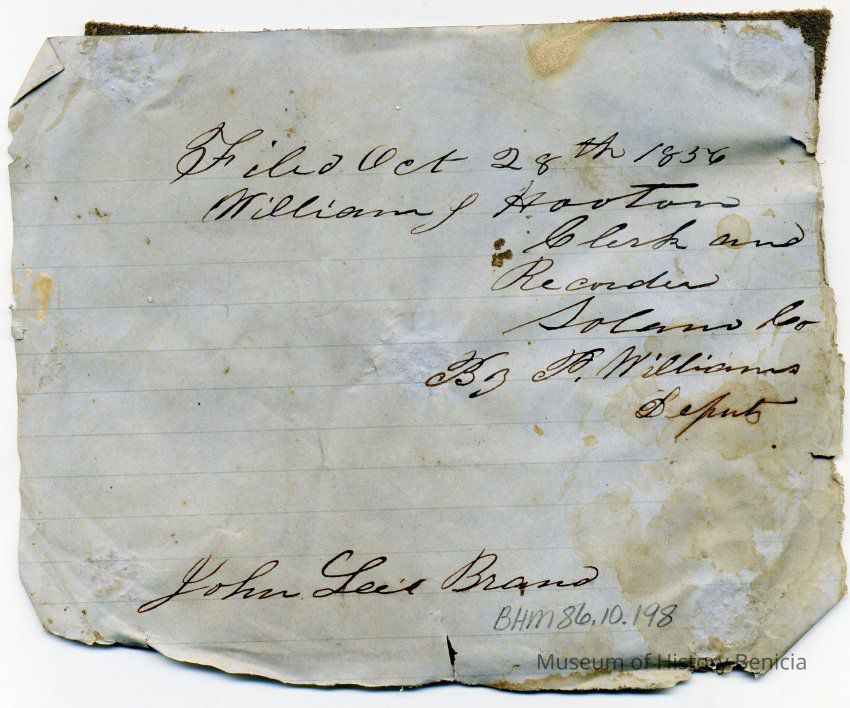 Filed Oct 28th 1856
William J Hooton
Clerk and
Recorder
Solano Co
By P. Williams
Deputy
John Lee's Brand
BHM 86.10.198
Museum of History Benicia